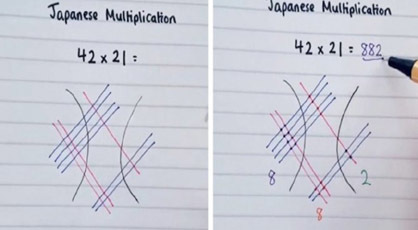 Japanese Multiplication
42 x 21 =
Japanese Multiplication
42 x 21 = 882
8
2
8